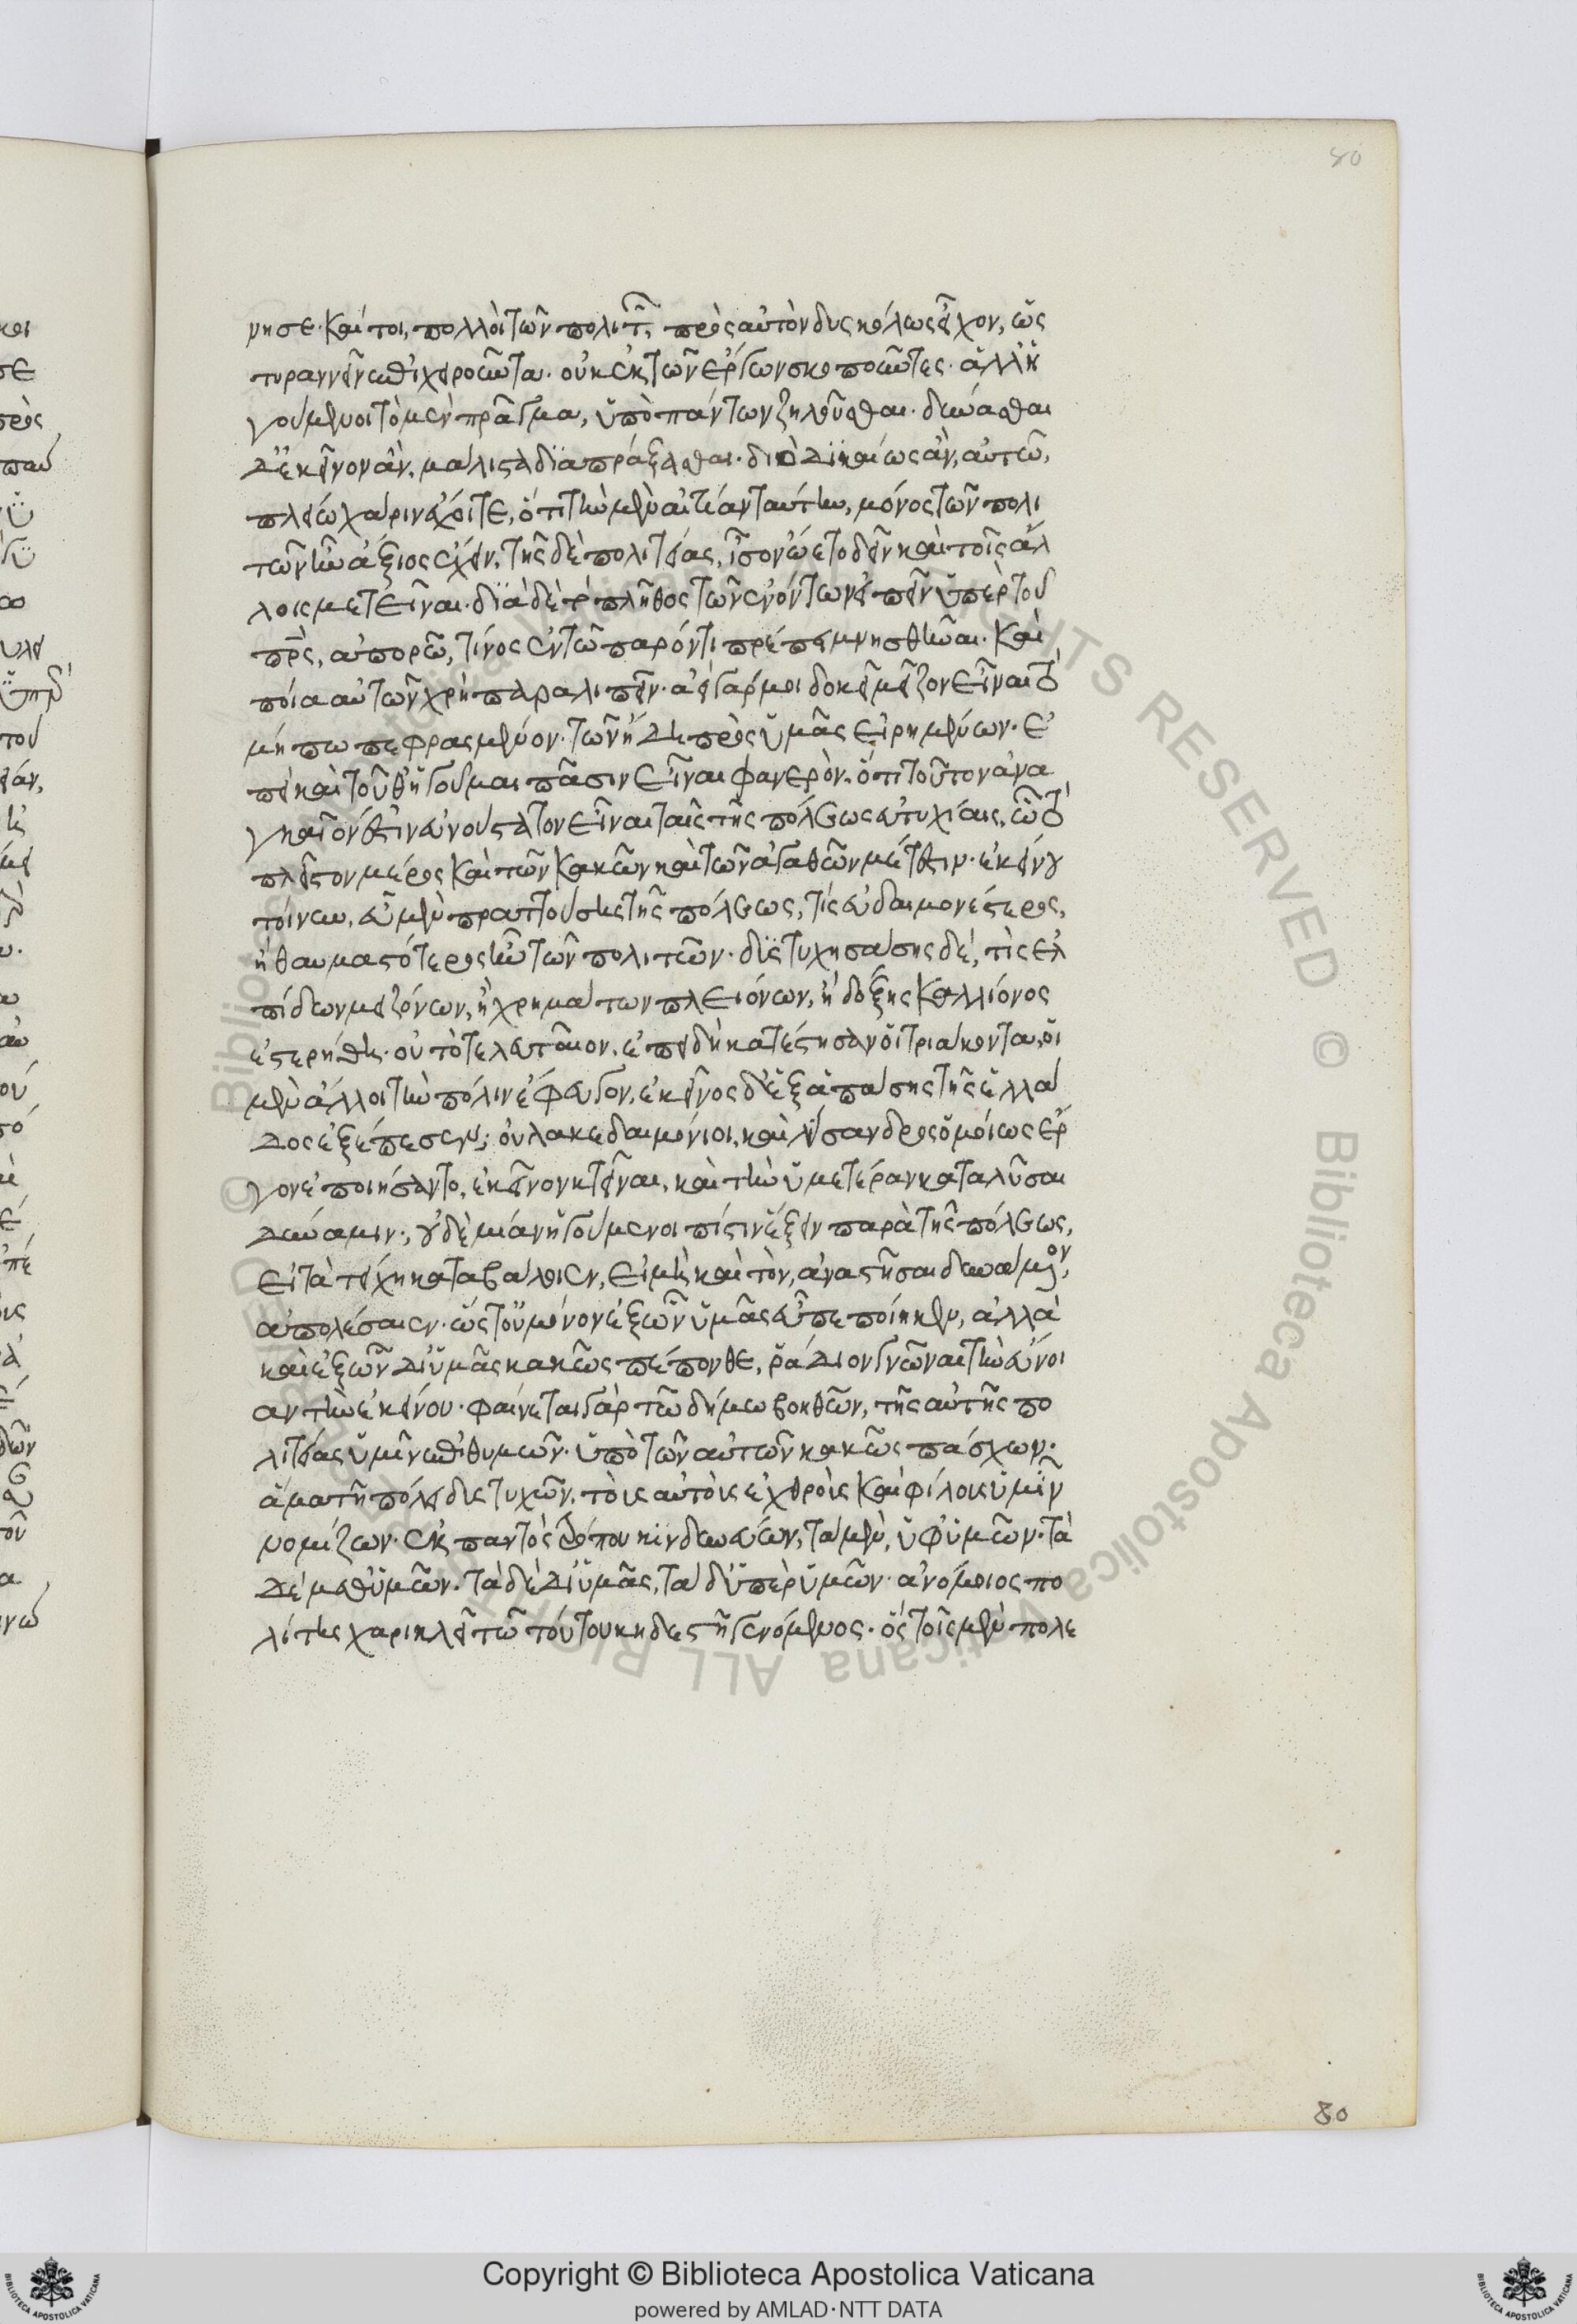 80
νησε· καί τοι, πολλοὶ τῶν πολιτῶν, πρὸς αὐτὸν δυσκόλως εἶχον, ὡς
τυραννεῖν ἐπιχειροῦντα· οὐκ ἐκ τῶν ἔργων σκοποῦντες· ἀλλ' ἡ
γούμενοι τὸ μὲν πρᾶγμα, ὑπὸ πάντων ζηλοῦσθαι· δύνασθαι
δ' ἐκεῖνον ἂν, μάλιστα διαπράξασθαι· διὸ δικαίως ἂν, αὐτῶ,
πλείω χάριν ἔχοιτε, ὅτι τὴν μὲν αἰτίαν ταύτην, μόνος τῶν πολι
τῶν ἦν ἄξιος ἔχειν, τῆς δὲ πολιτείας, ἴσον ᾤετο δεῖν καὶ τοῖς ἄλ
λοις μετεῖναι· διὰ δὲ τὸ πλῆθος τῶν ἐνόντων εἰπεῖν ὑπὲρ τοῦ
πρς, ἀπορῶ, τίνος ἐν τῶ παρόντι πρέπει μνησθῆναι· καὶ
ποῖα αὐτῶν χρὴ παραλιπεῖν· ἀεὶ γάρ μοι δοκεῖ μεῖζον εἶναι τὸ
μήπω πεφρασμένον· τῶν ἤδη πρὸς ὑμᾶς εἰρημένων· ἐ
πεὶ καὶ τοῦθ' ἡγοῦμαι πᾶσιν εἶναι φανερὸν, ὅτι τοῦτον ἀνα
γκαῖόν ἐστιν εὐνούστατον εἶναι ταῖς τῆς πόλεως εὐτυχίαις, ὧ τὸ
πλεῖστον μέρος καὶ τῶν κακῶν καὶ τῶν ἀγαθῶν μέτεστιν· ἐκείνου
τοίνυν, εὖ μὲν πραττούσης τῆς πόλεως, τίς εὐδαιμονέστερος,
ἢ θαυμαστότερος ἦν τῶν πολιτῶν· δυστυχησάσης δέ, τίς ἐλ
πίδων μειζόνων, ἢ χρημάτων πλειόνων, ἢ δόξης καλλιόνος
ἐστερήθη· οὐ τὸ τελευταῖον, ἐπειδὴ κατέστησαν οἱ τριάκοντα, οἱ
μὲν ἄλλοι τὴν πόλιν ἔφευγον, ἐκεῖνος δ' ἐξ ἁπάσης τῆς ἑλλά
δος ἐξέπεσεν; οὐ λακεδαιμόνιοι, καὶ λύσανδρος ὁμοίως ἔρ
γον ἐποιήσαντο, ἐκεῖνον κτεῖναι, καὶ τὴν ὑμετέραν καταλῦσαι
δύναμιν; οὐδεμίαν ἡγούμενοι πίστιν ἕξειν παρὰ τῆς πόλεως,
εἰ τὰ τείχη καταβάλοιεν, εἰ μὴ καὶ τὸν, ἀναστῆσαι δυνάμενον,
ἀπολέσαιεν· ὥστ' οὐ μόνον ἐξ ὧν ὑμᾶς εὖ πεποίηκεν, ἀλλὰ
καὶ ἐξ ὧν δι' ὑμᾶς κακῶς πέπονθε, ῥάδιον γνῶναι τὴν εὔνοι
αν τὴν ἐκείνου· φαίνεται γὰρ τῶ δήμω βοηθῶν, τῆς αὐτῆς πο
λιτείας ὑμῖν ἐπιθυμῶν· ὑπὸ τῶν αὐτῶν κακῶς πάσχων·
ἅμα τῆ πόλει δυστυχῶν, τοὺς αὐτοὺς ἐχθροὺς καὶ φίλους ὑμῖν
νομίζων· ἐκ παντὸς τρόπου κινδυνεύων, τὰ μὲν, ὑφ' ὑμῶν· τὰ
δὲ μεθ' ὑμῶν· τὰ δὲ δι' ὑμᾶς, τὰ δ' ὑπὲρ ὑμῶν· ἀνόμοιος πο
λίτης χαρικλεῖ τῶ τούτου κηδεστῆ γενόμενος· ὃς τοῖς μὲν πολε
80
Copyright © Biblioteca Apostolica Vaticana
powered by AMLAD·NTT DATA